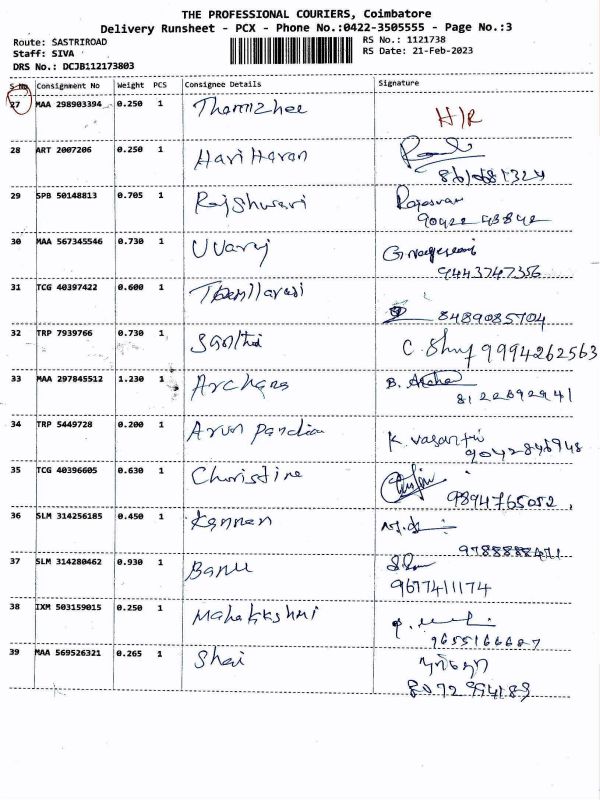 THE PROFESSIONAL COURIERS, Coimbatore
Delivery Runsheet - PCX - Phone No.:0422-3505555 - Page No.:3
Route: SASTRIROAD
RS No.: 1121738
Staff: SIVA
RS Date: 21-Feb-2023
DRS No.: DCJB112173803
S No Consignment No Weight PCS Consignee Details Signature
27 MAA 298903394 0.250 1 Thamizhee H/R
28 ART 2007206 0.250 1 Hari Haran
29 SPB 50148813 0.705 1 Rajshwari Rajeswari
90422 43842
30 MAA 567345546 0.730 1 UVaraj
9443747356
31 TCG 40397422 0.600 1
8489085704
32 TRP 7939766 0.730 1 Santhi
9994262563
33 MAA 297845512 1.230 1 Archana B.
8122692941
34 TRP 5449728 0.200 1 Arun Pandian K. Vasanthi
9042846948
35 TCG 40396605 0.630 1 Christine
9894765052
36 SLM 314256185 0.450 1 Kannan
37 SLM 314280462 0.930 1 Banu
9677411174
38 IXM 503159015 0.250 1 Mahalakshmi
9655166687
39 MAA 569526321 0.265 1 Shai
8072 994183